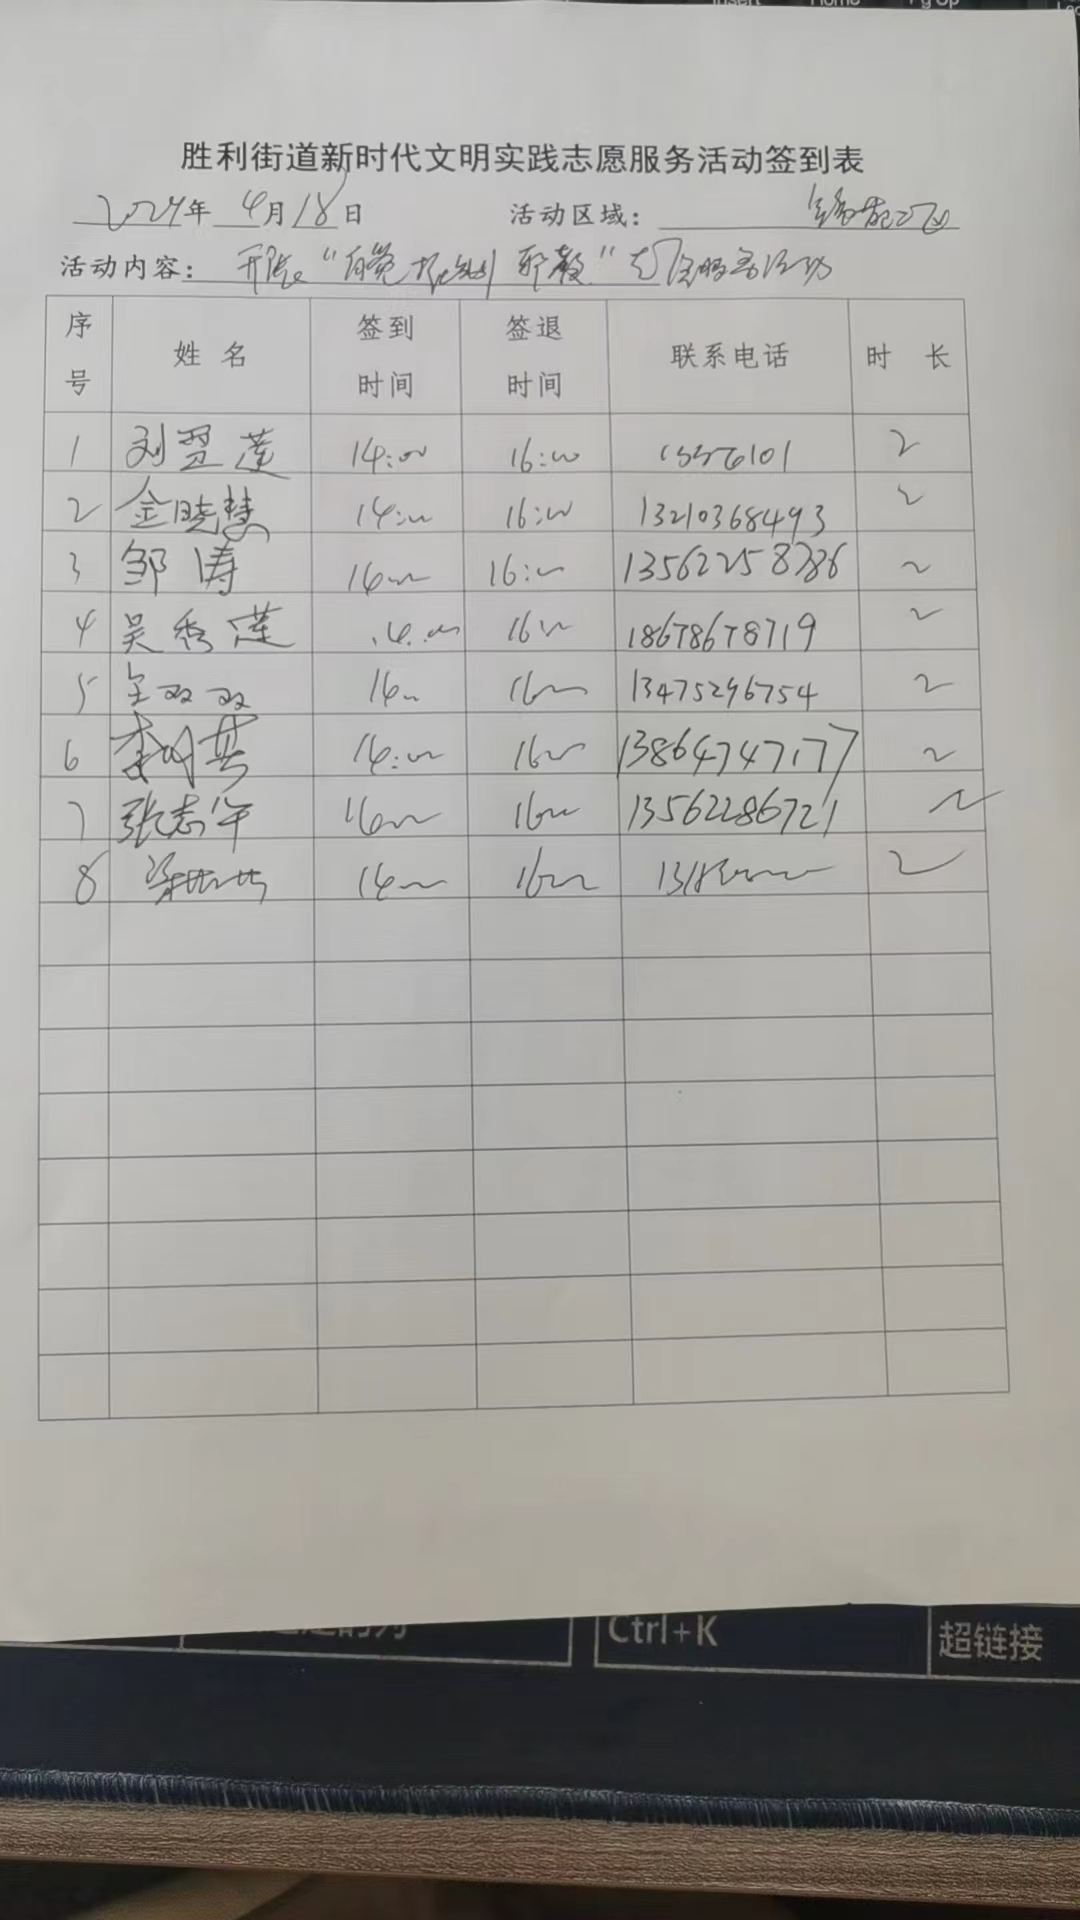 胜利街道新时代文明实践志愿服务活动签到表
2024年 4月18日 活动区域:
活动内容: 开展"自觉抵制邪教"志愿服务活动
序号 姓名 签到时间 签退时间 联系电话 时长
1 刘翠莲 14:00 16:00 2
2 金晓慧 14:00 16:00 13210368493 2
3 邹涛 14:00 16:00 13562258786 2
4 吴秀莲 14:00 16:00 18678678719 2
5 双双 14:00 16:00 13475296754 2
6 李明英 14:00 16:00 13864747177 2
7 张志华 14:00 16:00 13562286721 2
8 14:00 16:00 2
Ctrl+K 超链接